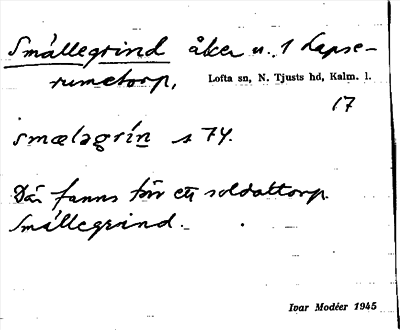 Smällegrind åker u. 1 Lapse-
rumetorp,
Lofta sn, N. Tjusts hd, Kalm. l.
17
smælagrín s 74.
Där fanns förr ett soldattorp
Smällegrind.
Ivar Modéer 1945